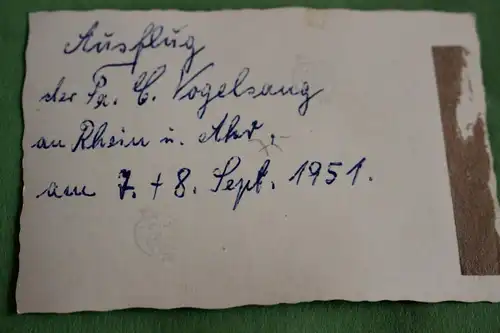 Ausflug
der Fa. C. Vogelsang
an Rhein u. Ahr,
am 7. + 8. Sept. 1951.